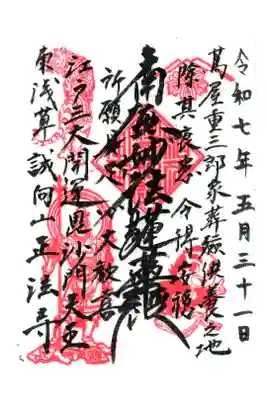 令和七年五月三十一日
蔦屋重三郎家葬儀供養之地
除其衰患 令得安穏
南無妙法蓮華経
祈願 大歓喜
江戸三大開運毘沙門天王
東浅草 誠向山正法寺